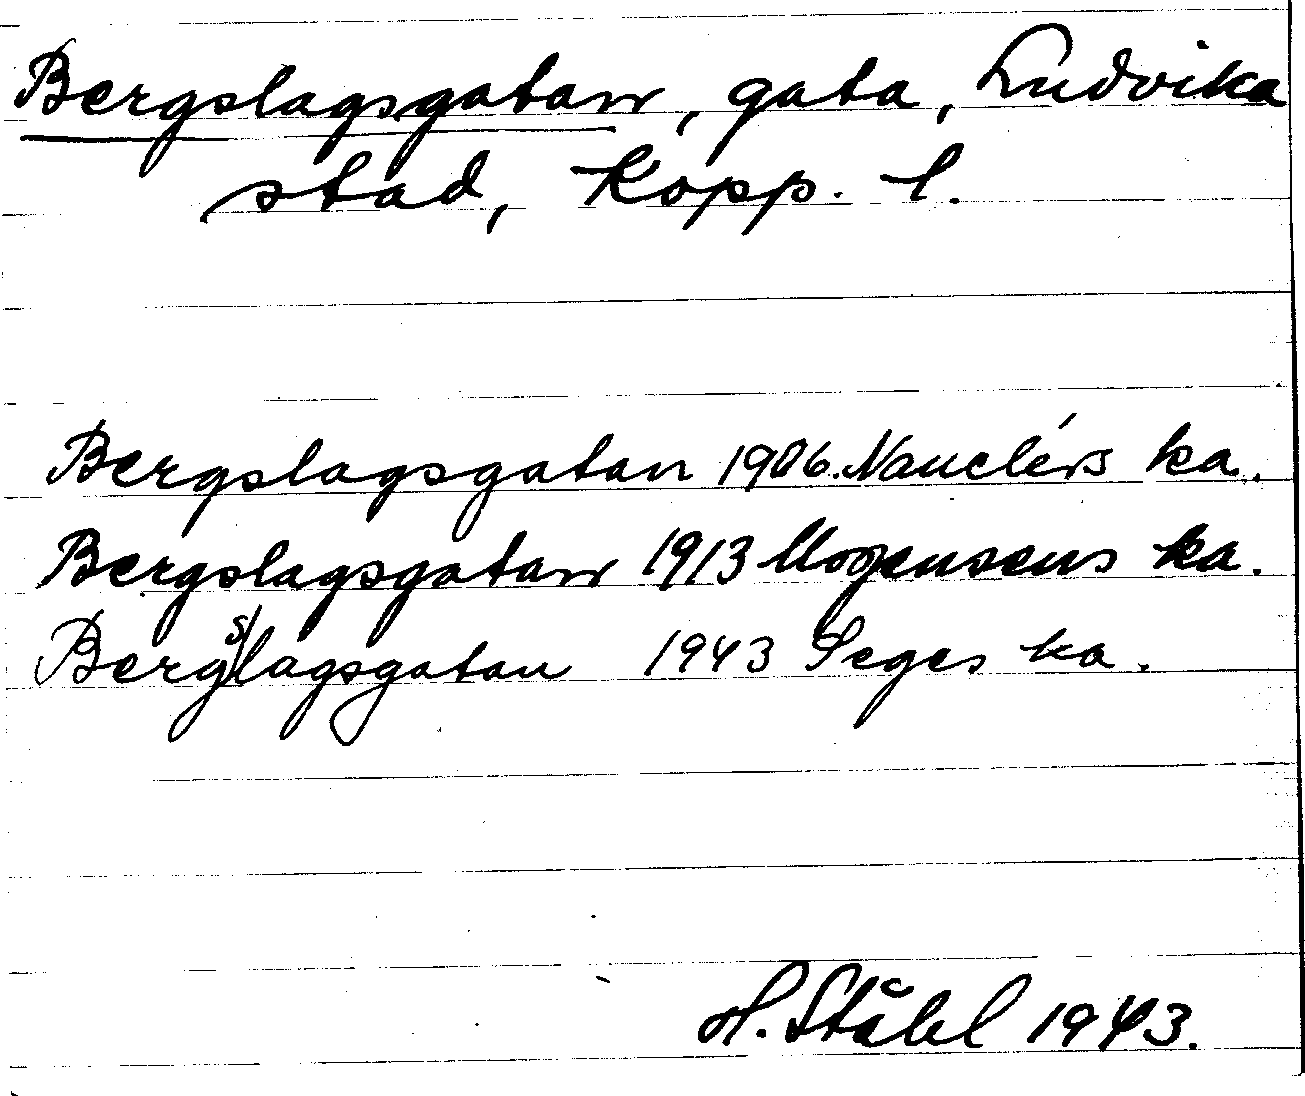 Bergslagsgatan, gata, Ludvika
stad, Kopp. l.
Bergslagsgatan 1906. Nauclérs ka.
Bergslagsgatan 1913 Mogensens ka.
Bergslagsgatan 1943 Seges ka.
H. Ståhl 1943.